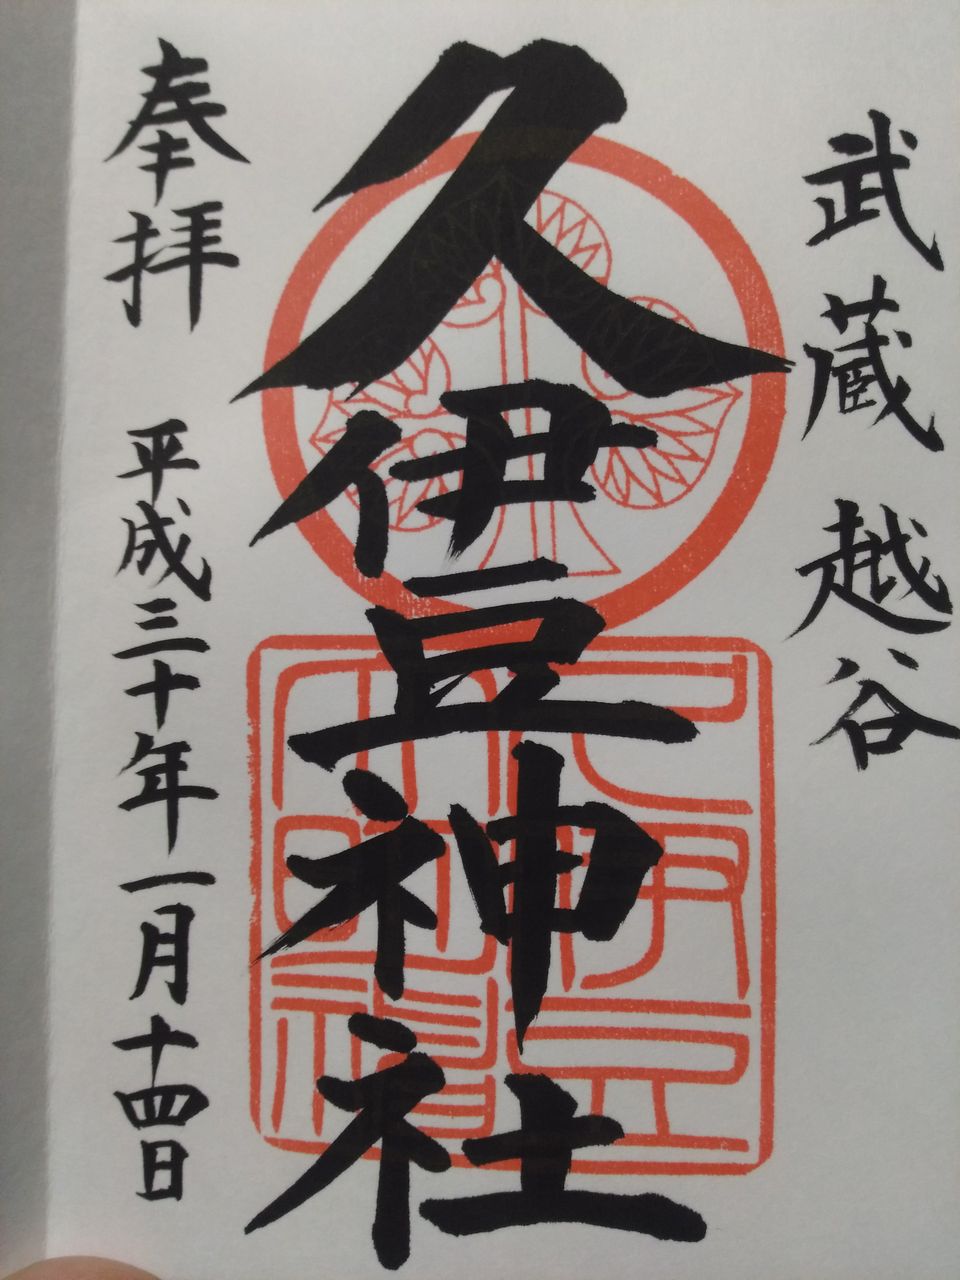 武蔵 越谷
久伊豆神社
奉拝 平成三十年一月十四日